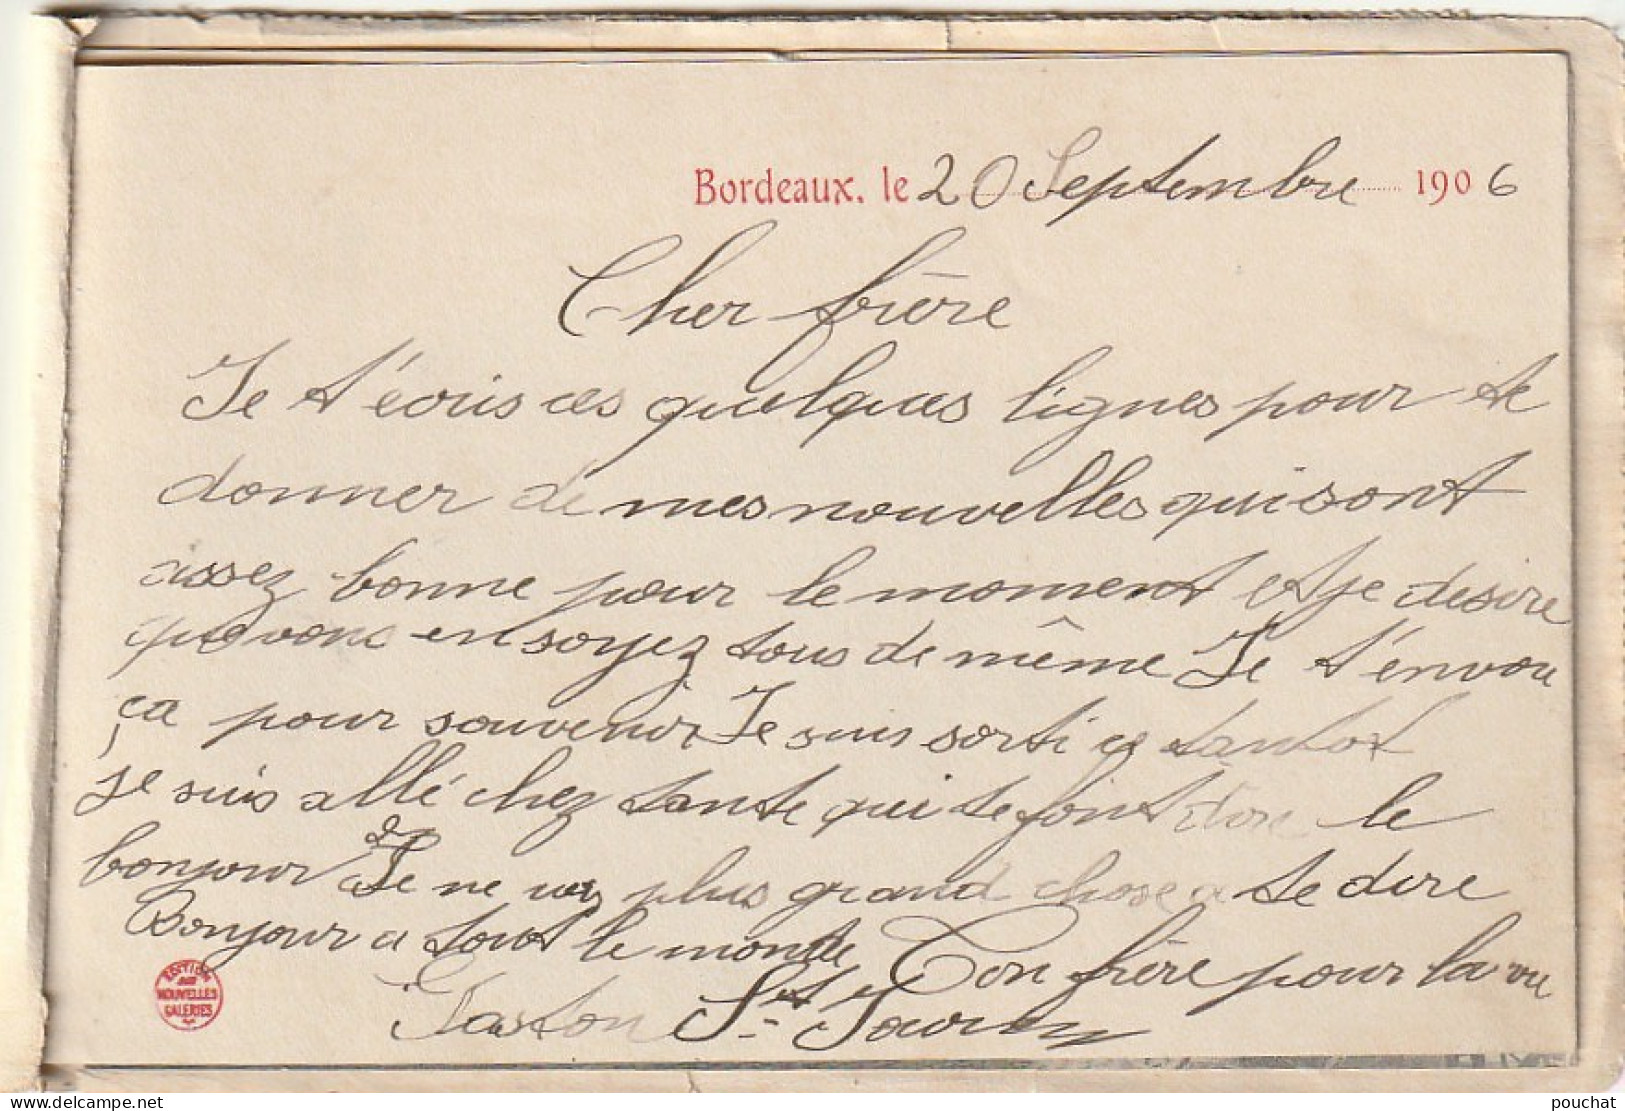 Bordeaux, le 20 Septembre 1906
Cher frère
Je t'écris ces quelques lignes pour te
donner de mes nouvelles qui sont
assez bonne pour le moment et je desire
que vous en soyez tous de même Je t'envoi
ça pour souvenir Je suis sorti ce tantot
je suis allé chez tante qui te font dire le
bonjour Je ne vois plus grand chose a te dire
Bonjour a tout le monde Ton frère pour la vie
Gaston St
EDITION
DES
NOUVELLES
GALERIES
delcampe.net
pouchat